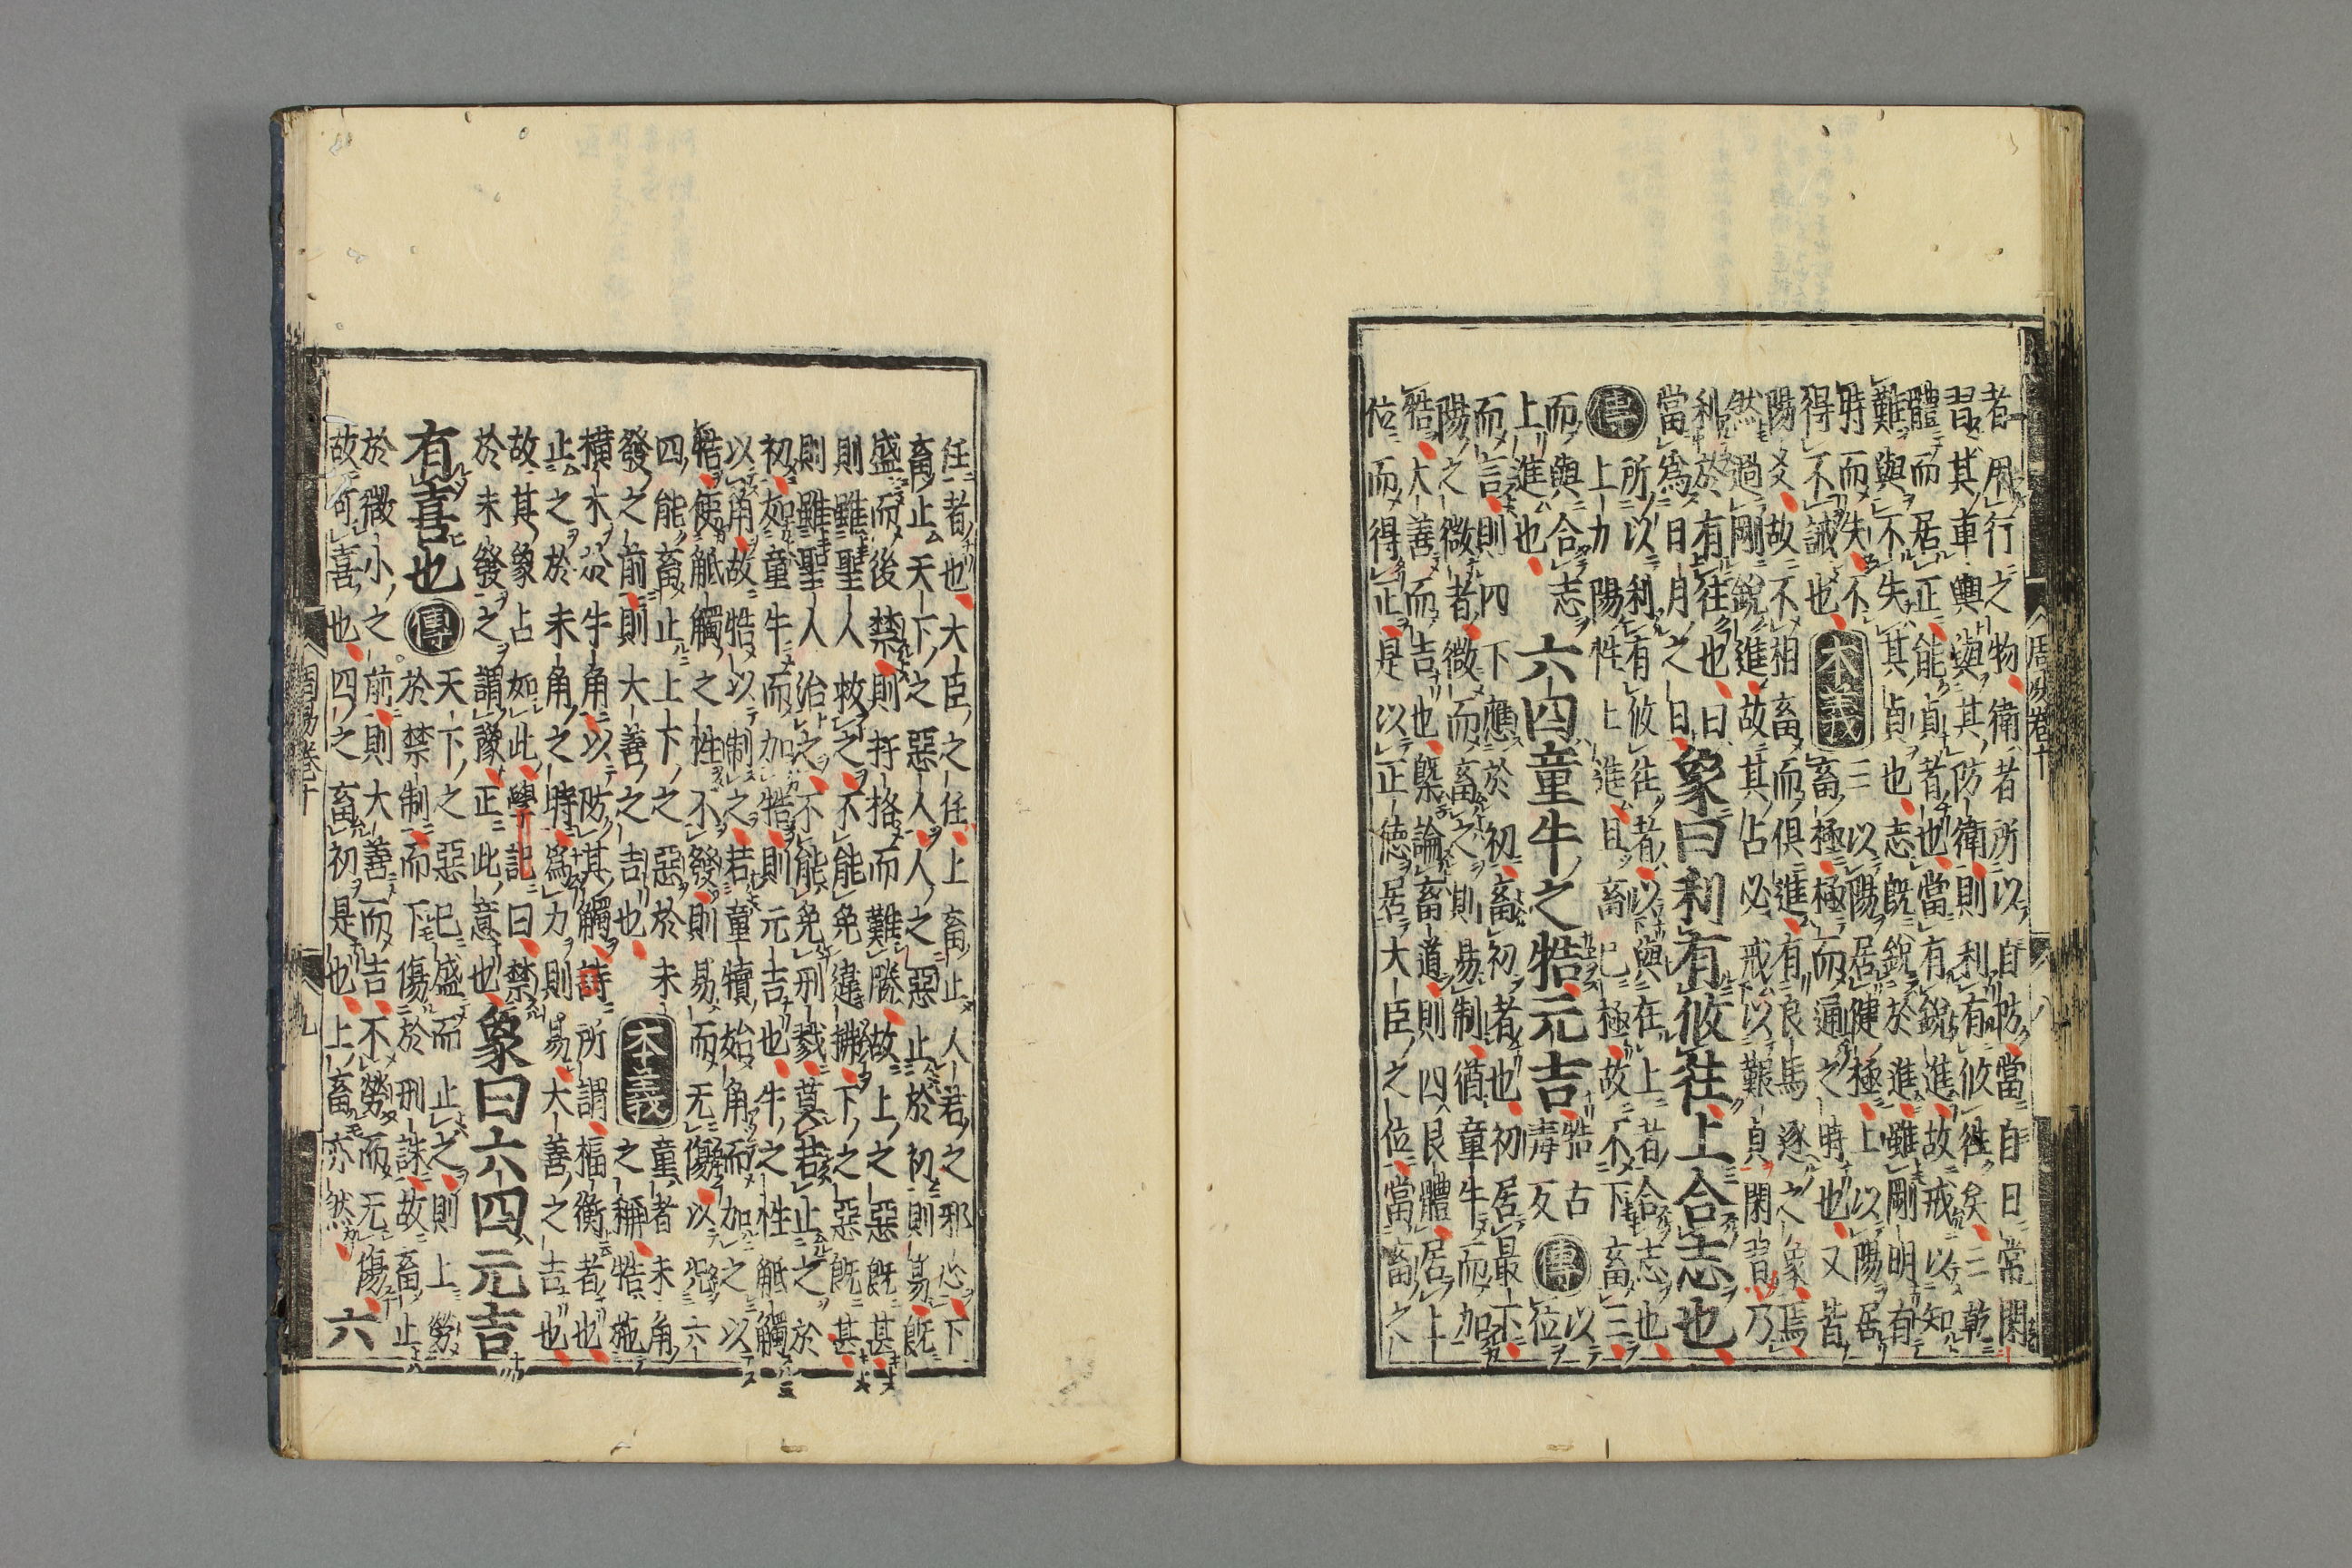 者用行之物衛者所以自防當自日常閑
習其車輿與其防衛則利有攸往矣三乾
體而居正能貞者也當有銳進故戒以知
難與不失其貞也志既銳於進雖剛明有
時而失不
得不誡也
本義
三以陽居健極上以陽居
畜極極而通之時也又皆
陽爻故不相畜而俱進有良馬逐之象焉
然過剛銳進故其占必戒以艱貞閑習乃
利於有往也曰
當為日月之日
象曰利有攸往上合志也
傳
所以利有攸往者以與在上者合志也
上力陽性上進且畜已極故不下畜三
而與合志
上進也
六四童牛之牿元吉
牿古
毒反
傳
以
位
而言則四下應於初畜初者也初居最下
陽之微者微而畜之則易制猶童牛而加
牿大善而吉也槩論畜道則四艮體居上
位而得正是以正德居大臣之位當畜之
周易卷十
八
任者也大臣之任上畜止人君之邪心下
畜止天下之惡人人之惡止於初則易既
盛而後禁則扞格而難勝故上之惡既甚
則雖聖人救之不能免違拂下之惡既甚
則雖聖人治之不能免刑戮莫若止之於
初如童牛而加牿則元吉也牛之性觝觸
以角故牿以制之若童犢始角而加之以
牿使觝觸之性不發則易而无傷以况六
四能畜止上下之惡於未
發之前則大善之吉也
本義
童者未角
之稱牿施
橫木於牛角以防其觸詩所謂楅衡者也
止之於未角之時為力則易大善之吉也
故其象占如此學記曰禁
於未發之謂豫正此意也
象曰六四元吉
有喜也
傳
天下之惡已盛而止之則上勞
於禁制而下傷於刑誅故畜止
於微小之前則大善而吉不勞而无傷
故可喜也四之畜初是也上畜亦然
六
周易卷十
九